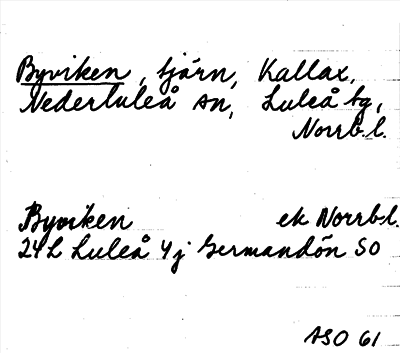 Byviken, tjärn, Kallax,
Nederluleå sn, Luleå tg,
Norrb.l.
Byviken ek Norrb.l.
24L Luleå 4j Germandön SO
ASO 61